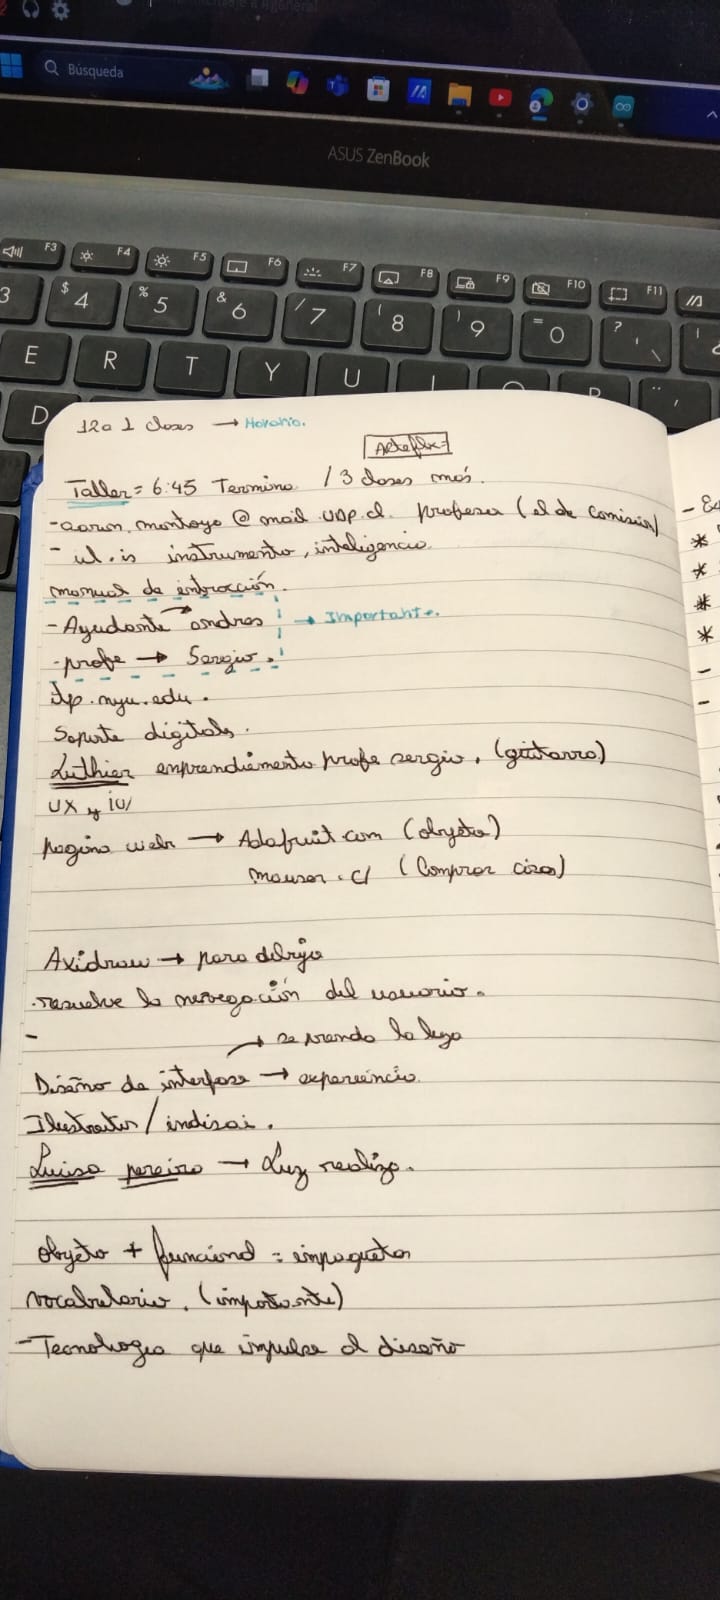 Búsqueda
ASUS ZenBook
F3 F4 F5 F6 F7 F8 F9 F10 F11
3 $ 4 % 5 & 6 / 7 ( 8 ) 9 = 0 ? '
E R T Y U
D
12 a 1 clases → Horario.
Taller = 6:45 Termino / 3 clases más.
- aaron.montoya@mail.udp.cl. profesor (el de comisión)
- instrumento, inteligencia.
manual de
- Ayudante → andres → Importante.
- profe → Sergio.
itp.nyu.edu.
Soporte digitals.
Luthier emprendimiento profe sergio, (guitarra)
UX y iU/
pagina web → Adafruit.com (objeto)
mouser.cl (Comprar)
Axidraw → para dibujo
-resuelve la navegación del usuario.
-
→ se prende la luz
Diseño de interfase → experiencia.
Luisa pereira → Luz realizo.
objeto + funcional = impaquetar
vocabulario. (importante)
- Tecnologia que impulse el diseño